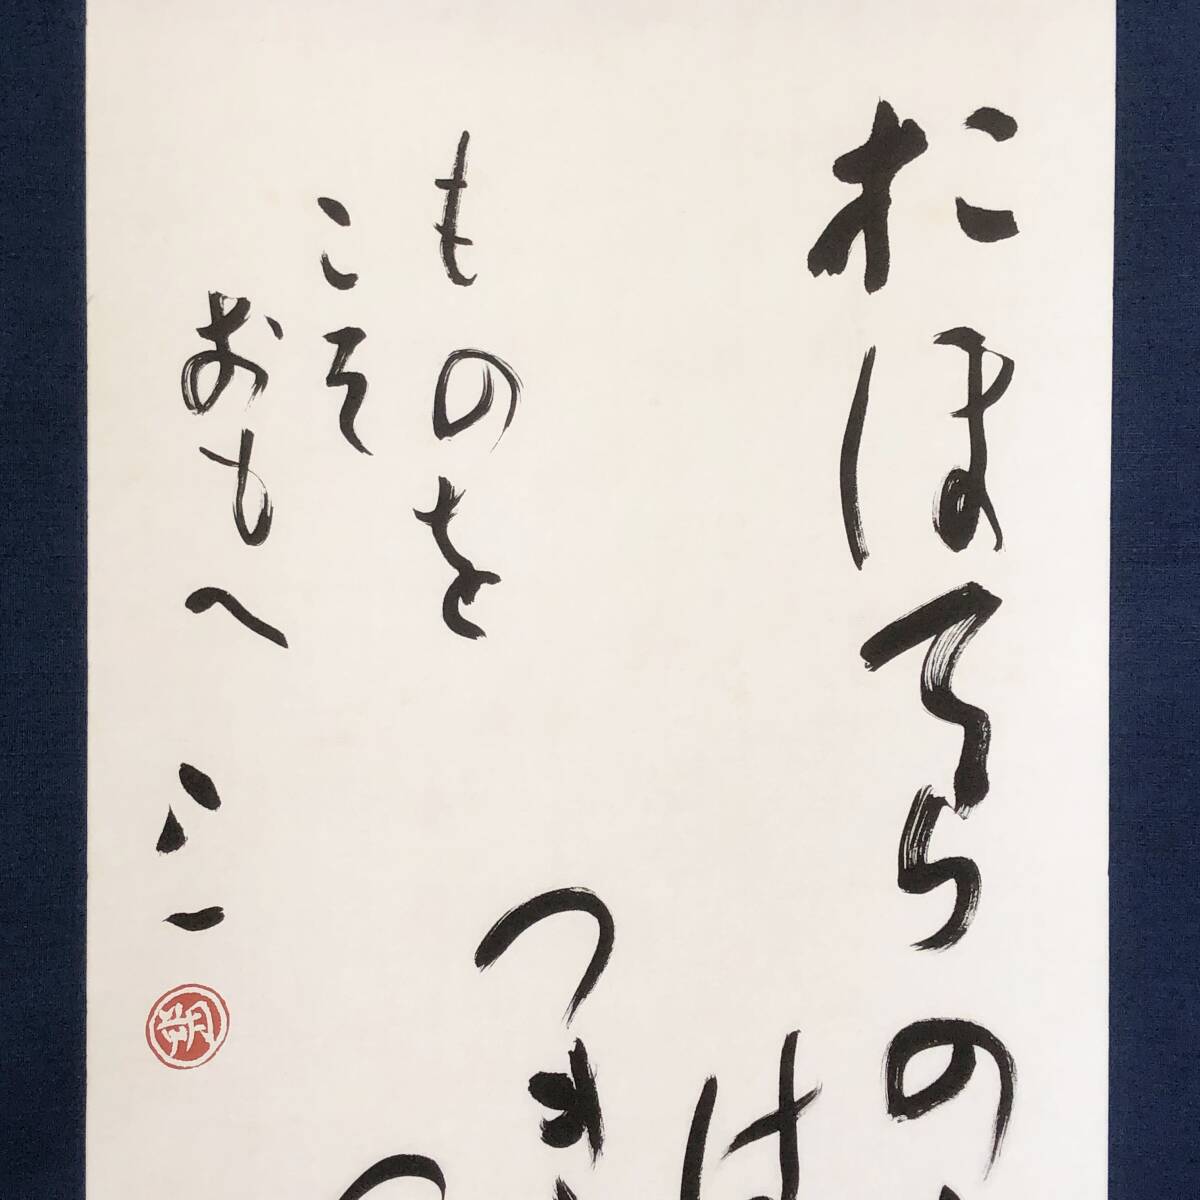 おほてらの
は
つき
ものを
こそ
おもへ
八一
朔